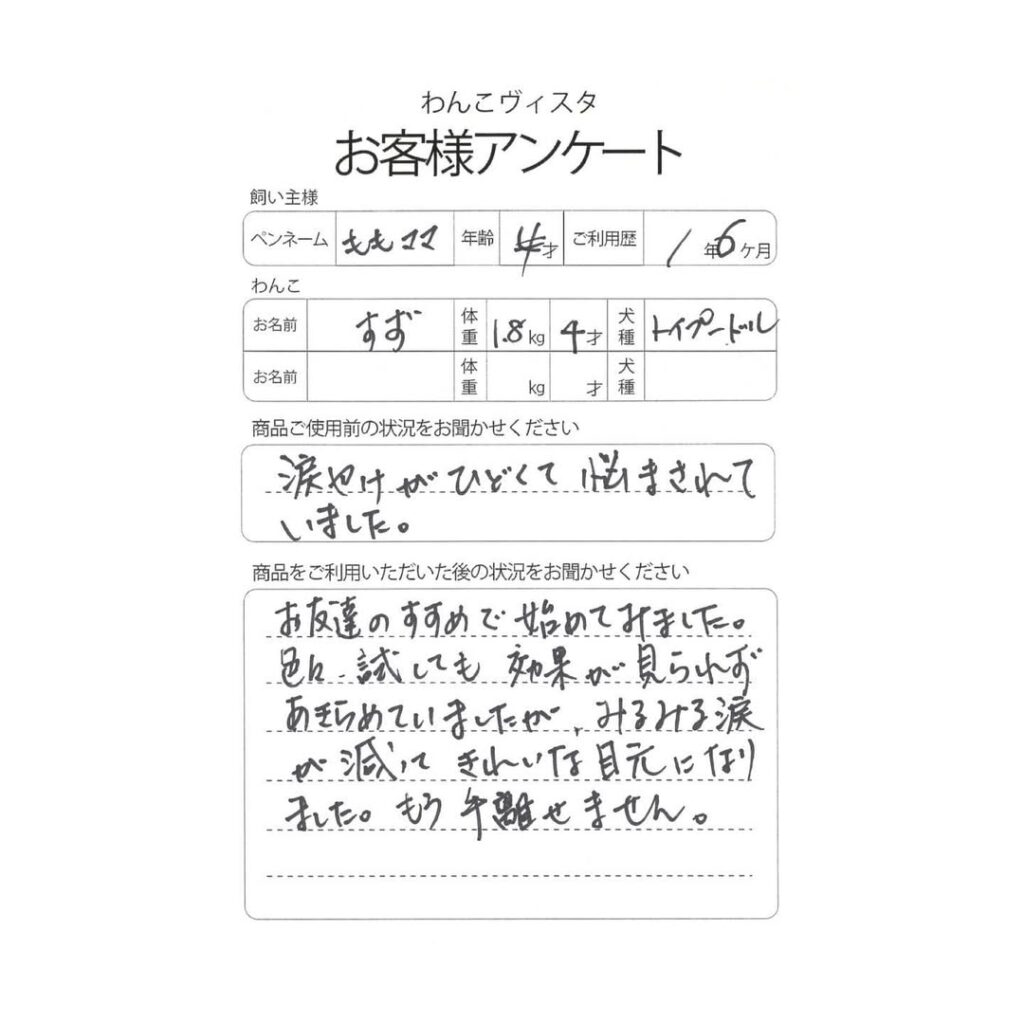 わんこヴィスタ
お客様アンケート
飼い主様
ペンネーム ももママ 年齢 才 ご利用歴 1年6ヶ月
わんこ
お名前 すず 体重 1.8kg 4才 犬種 トイプードル
お名前 体重 kg 才 犬種
商品ご使用前の状況をお聞かせください
涙やけがひどくて悩まされて
いました。
商品をご利用いただいた後の状況をお聞かせください
お友達のすすめで始めてみました。
色々試しても効果が見られず
あきらめていましたが、みるみる涙
が減って きれいな目元になり
ました。もう手離せません。